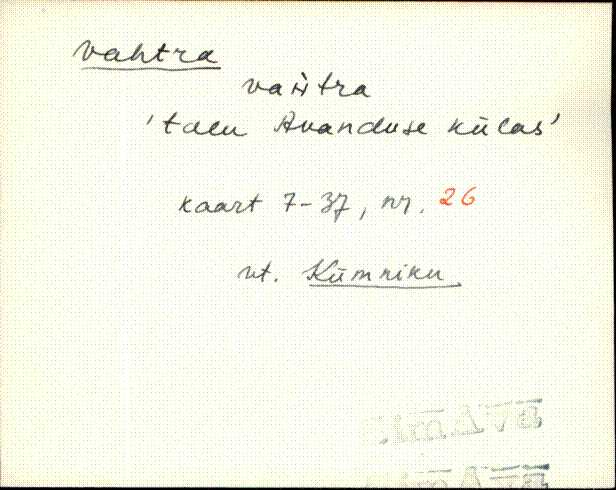 vahtra
vaȟtra
'talu Avanduse külas'
kaart 7-37, nr. 26
vt. Kümniku